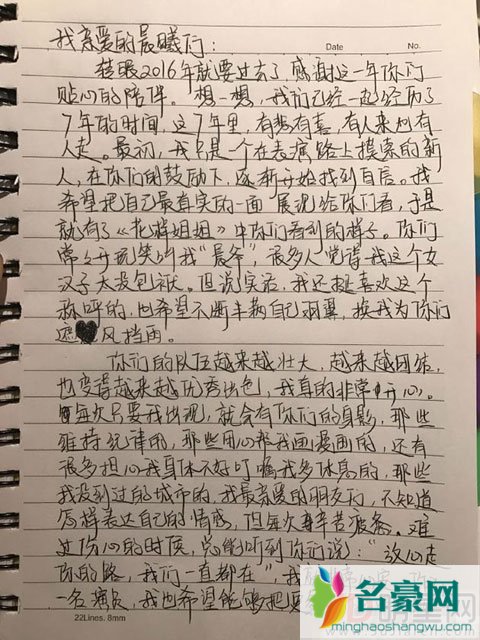 我亲爱的晨曦们：
Date No.
转眼2016年就要过去了感谢这一年你们
贴心的陪伴。想一想，我们已经一起经历了
7年的时间，这7年里，有悲有喜，有人来也有
人走。最初，我只是个在表演路上摸索的新
人，在你们的鼓励下，逐渐开始找到自信。我
希望把自己最真实的一面展现给你们看，于是
就有了《花样姐姐》中你们看到的样子。你们
常常开玩笑叫我“晨爷”，很多人觉得我这个女
汉子太没包袱。但说实话，我还挺喜欢这个
称呼的，也希望不断丰满自己羽翼，换我为你们
遮风挡雨。
你们的队伍越来越壮大，越来越团结，
也变得越来越优秀出色，我真的非常开心。
每次只要我出现，就会有你们的身影，那些
维持纪律的，那些用心帮我画漫画的，还有
很多担心我身体不好叮嘱我多休息的，那些
我没到过的城市的，我最亲爱的朋友们，不知道
怎样表达自己的情感，但每次辛苦疲惫。难
过伤心的时候，总能听到你们说：“放心走
你的路，我们一直都在”，我
一名演员，我也希望能够把更
22Lines. 8mm
名豪网
minghaoshangwu.com